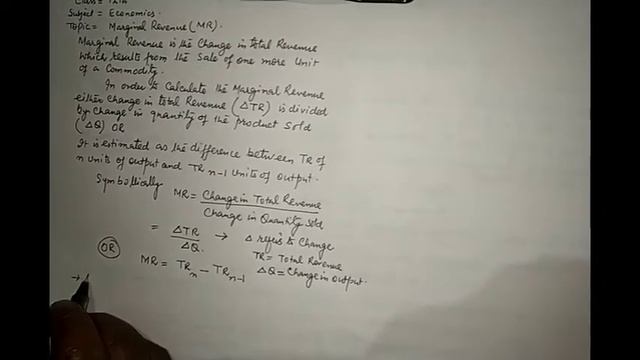 Class = 12th
Subject = Economics.
Topic = Marginal Revenue (MR).
Marginal Revenue is the Change in total Revenue
which results from the Sale of one more Unit
of a Commodity.
In order to Calculate the Marginal Revenue
either Change in total Revenue (ΔTR) is divided
by Change in quantity of the product sold
(ΔQ) OR
It is estimated as the difference between TR of
n Units of output and TR n-1 Units of output.
Symbolically MR = Change in Total Revenue
Change in Quantity sold
= ΔTR / ΔQ. → Δ refers to Change
TR = Total Revenue
OR MR = TRn - TRn-1 ΔQ = Change in output.
→